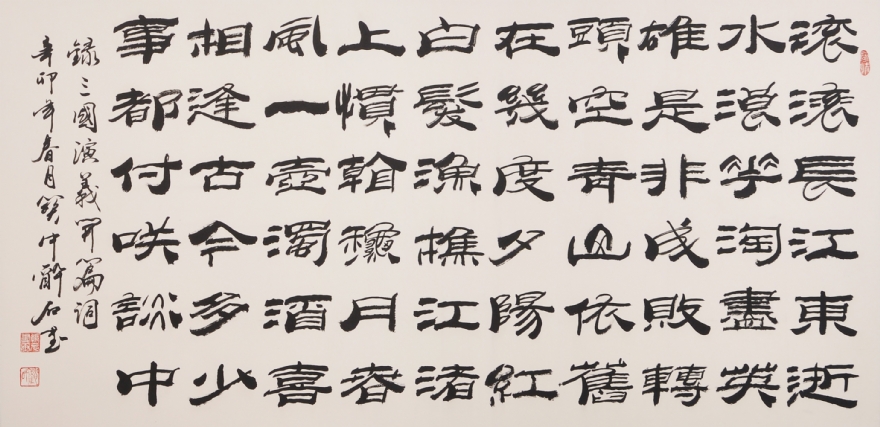 滚滚長江東逝
水浪花淘盡英
雄是非成敗轉
頭空青山依舊
在幾度夕陽紅
白髮漁樵江渚
上慣看龝月春
風一壺濁酒喜
相逢古今多少
事都付咲談中
録三國演義開篇詞
辛卯年春月中醉石書